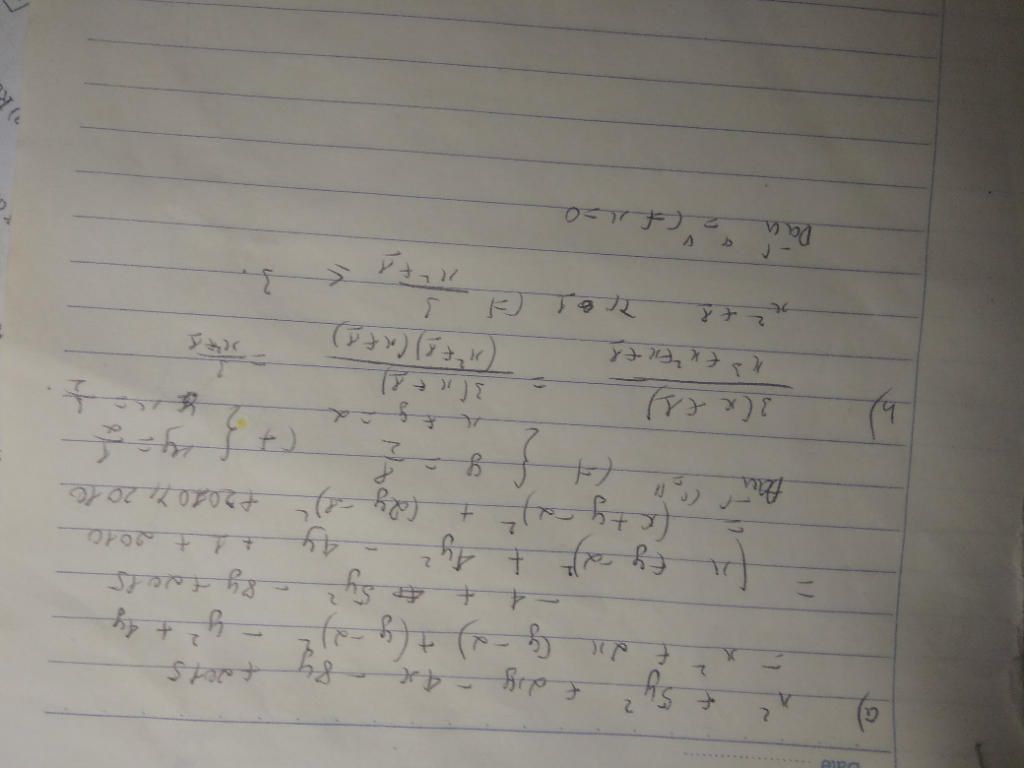 Date
a) x² + 5y² + 2xy - 4x - 8y + 2015
= x² + 2x(y-2) + (y-2)² - y² + 4y
- 4 + 5y² - 8y + 2015
= (x+y-2)² + 4y² - 4y + 1 + 2010
= (x+y-2)² + (2y-1)² + 2010 ≥ 2010
Dấu "=" (=) { y = 1/2 (=) { y = 1/2
x + y = 2 x = 3/2.
b) 3(x+1)/(x³+x²+x+1) = 3(x+1)/((x²+1)(x+1)) = 3/(x²+1)
x² + 1 ≥ 1 (=) 3/(x²+1) ≤ 3.
Dấu "=" (=) x = 0